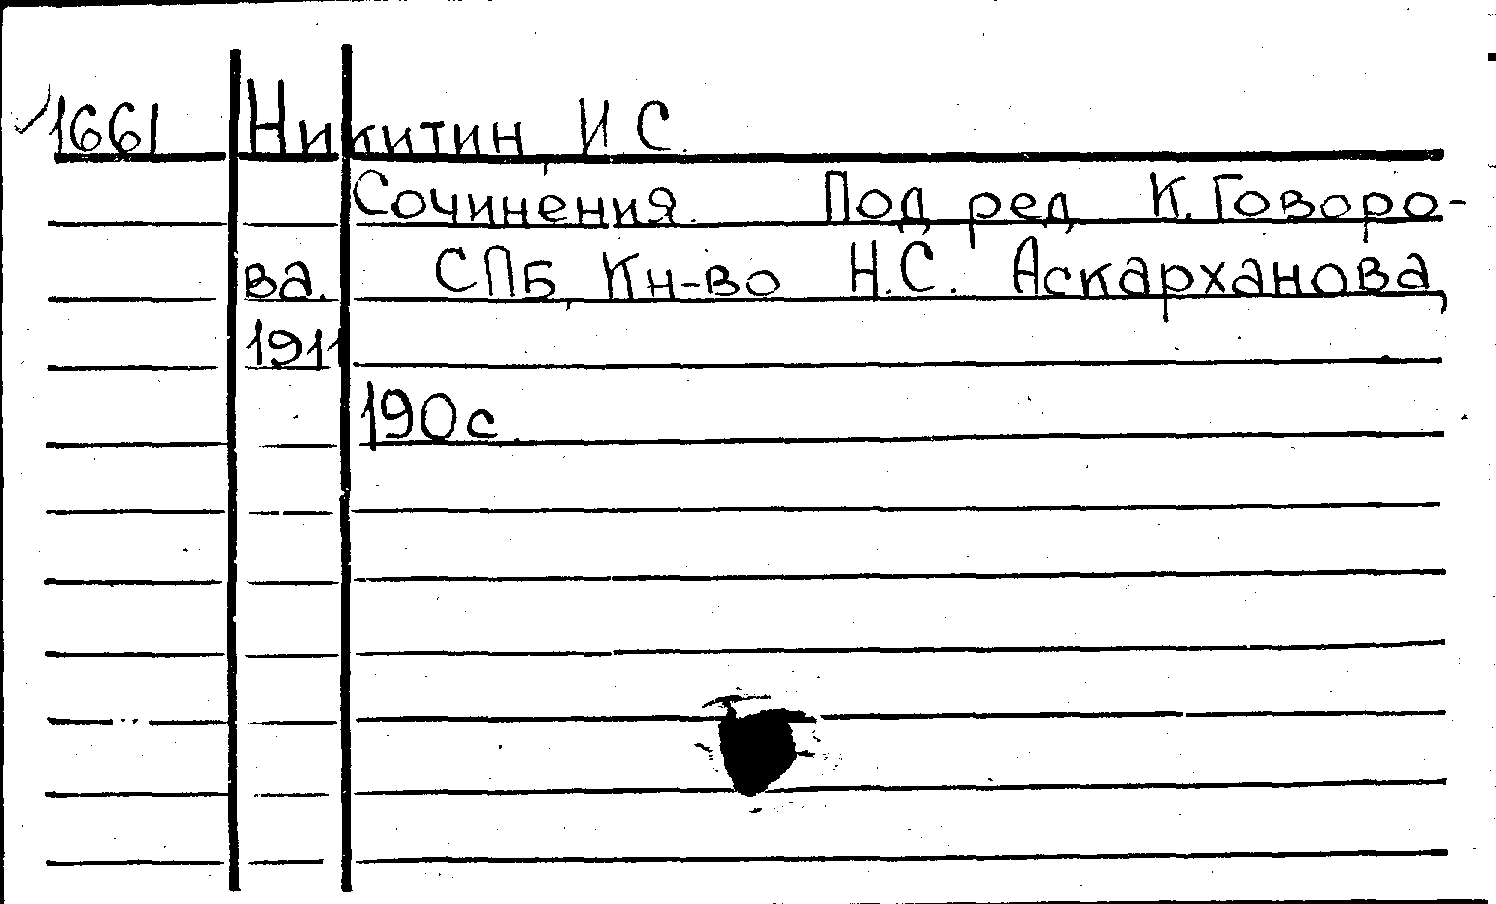 1661 Никитин, И С.
Сочинения. Под ред К. Говоро-
ва. СПБ, Кн-во Н.С. Аскарханова,
1911
190с.